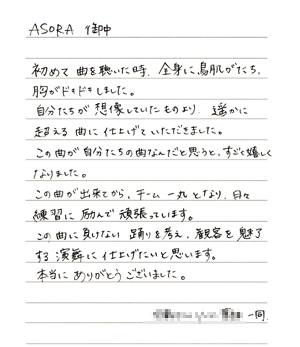 ASORA 御中
初めて曲を聴いた時、全身に鳥肌がたち、
胸がドキドキしました。
自分たちが想像していたものより、遥かに
超える曲に仕上げていただきました。
この曲が自分たちの曲なんだと思うと、すごく嬉しく
なりました。
この曲が出来てから、チーム一丸となり、日々
練習に励んで頑張っています。
この曲に負けない踊りを考え、観客を魅了
する演舞に仕上げたいと思います。
本当にありがとうございました。
一同